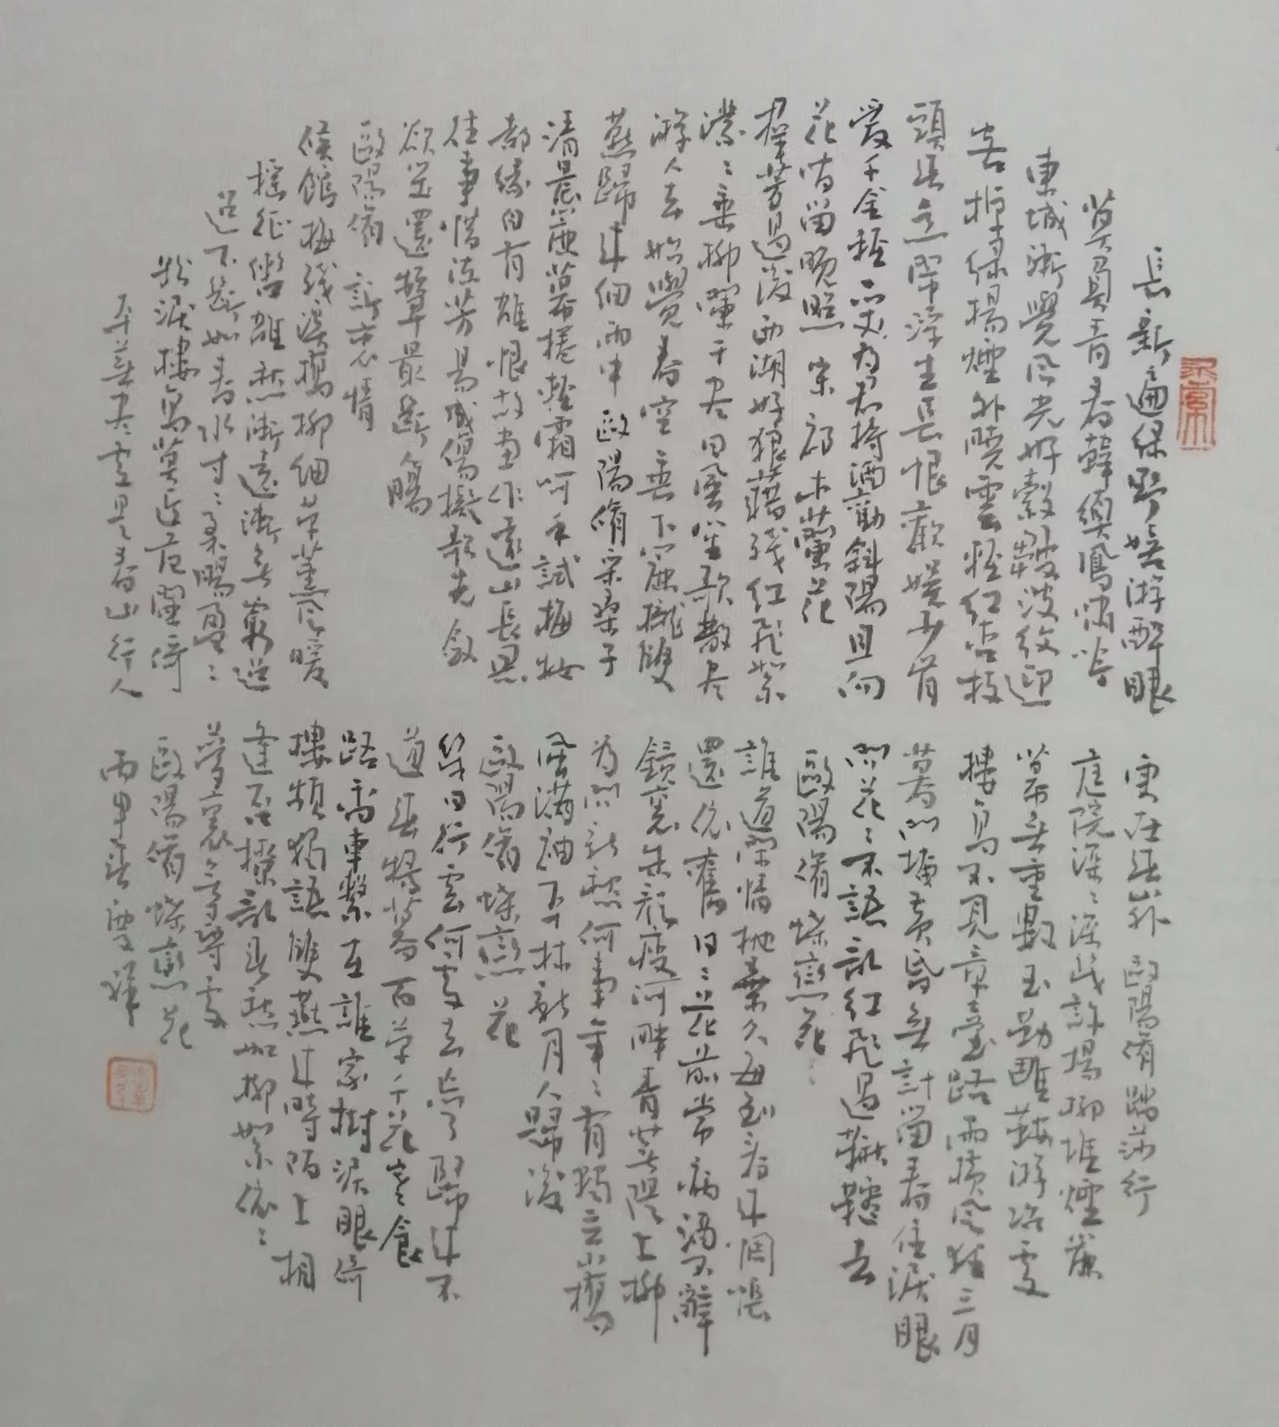 長新遍綠野嬉游醉眼
莫負青春韓縝鳳嘯吟
東城漸覺風光好縠皺波紋迎
客棹綠楊煙外曉雲輕紅杏枝
頭春意鬧浮生長恨歡娛少肯
愛千金輕一笑為君持酒勸斜陽且向
花間留晚照 宋祁木蘭花
群芳過後西湖好狼藉殘紅飛絮
濛〻垂柳闌干盡日風笙歌散盡
游人去始覺春空垂下簾櫳雙
燕歸來細雨中 歐陽脩采桑子
清晨簾幕捲輕霜呵手試梅妝
都緣自有離恨故畫作遠山長思
往事惜流芳易成傷擬歌先斂
欲笑還顰最斷人腸
歐陽脩 訴衷情
候館梅殘溪橋柳細草薰風暖
搖征轡離愁漸遠漸無窮迢
迢不斷如春水寸〻柔腸盈〻
粉淚樓高莫近危闌倚
平蕪盡處是春山行人
更在春山外 歐陽脩踏莎行
庭院深〻深幾許楊柳堆煙簾
幕無重數玉勒雕鞍游冶處
樓高不見章臺路雨橫風狂三月
暮春門掩黃昏無計留春住淚眼
問花〻不語亂紅飛過鞦韆去
歐陽脩蝶戀花〻
誰道閑情拋棄久每到春來惆悵
還依舊日〻花前常病酒不辭
鏡裏朱顏瘦河畔青蕪隄上柳
為問新愁何事年〻有獨立小橋
風滿袖平林新月人歸後
歐陽脩蝶戀花
幾日行雲何處去忘了歸來不
道春將暮百草千花寒食
路香車繫在誰家樹淚眼倚
樓頻獨語雙燕來時陌上相
逢否撩亂春愁如柳絮依〻
夢裏無尋處
歐陽脩蝶戀花
丙申春